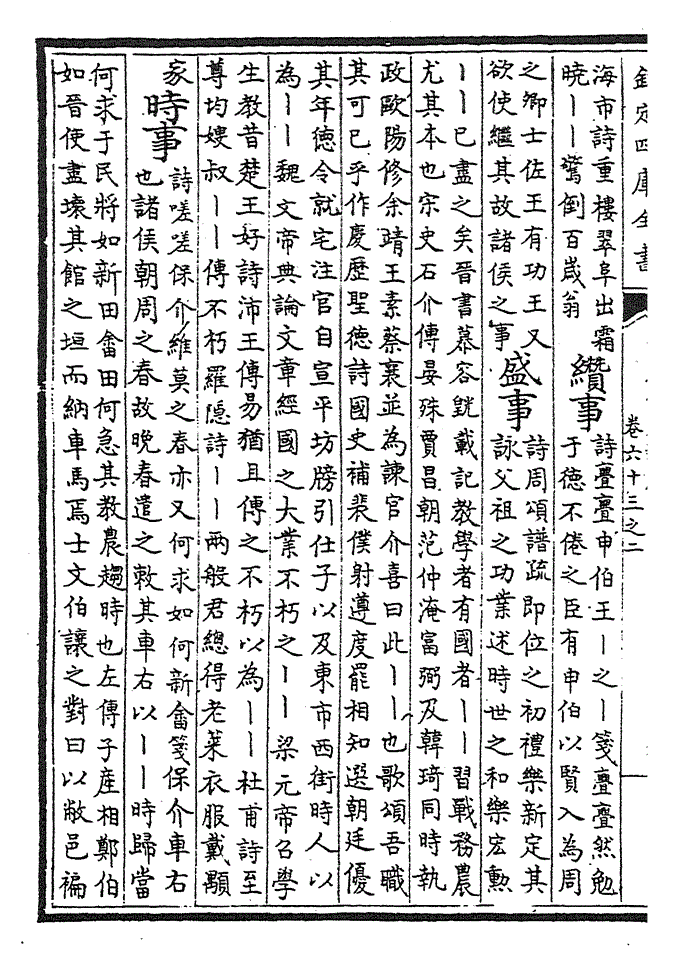 欽定四庫全書
卷六十三之二
海市詩重樓翠阜出霜
曉丨丨驚倒百歲翁
纘事
詩亹亹申伯王丨之丨箋亹亹然勉
于德不倦之臣有申伯以賢入為周
之卿士佐王有功王又
欲使繼其故諸侯之事
盛事
詩周頌譜疏即位之初禮樂新定其
詠父祖之功業述時世之和樂宏勲
丨丨已盡之矣晉書慕容皝載記教學者有國者丨丨習戰務農
尤其本也宋史石介傳晏殊賈昌朝范仲淹富弼及韓琦同時執
政歐陽修余靖王素蔡襄並為諫官介喜曰此丨丨也歌頌吾職
其可已乎作慶歷聖德詩國史補裴僕射遵度罷相知選朝廷優
其年德令就宅注官自宣平坊牓引仕子以及東市西街時人以
為丨丨魏文帝典論文章經國之大業不朽之丨丨梁元帝召學
生教昔楚王好詩沛王傳易猶且傳之不朽以為丨丨杜甫詩至
尊均嫂叔丨丨傳不朽羅隱詩丨丨兩般君總得老萊衣服戴顒
家
時事
詩嗟嗟保介維莫之春亦又何求如何新畬箋保介車右
也諸侯朝周之春故晚春遣之敕其車右以丨丨時歸當
何求于民將如新田畬田何急其教農趨時也左傳子產相鄭伯
如晉使盡壞其館之垣而納車馬焉士文伯讓之對曰以敝邑褊